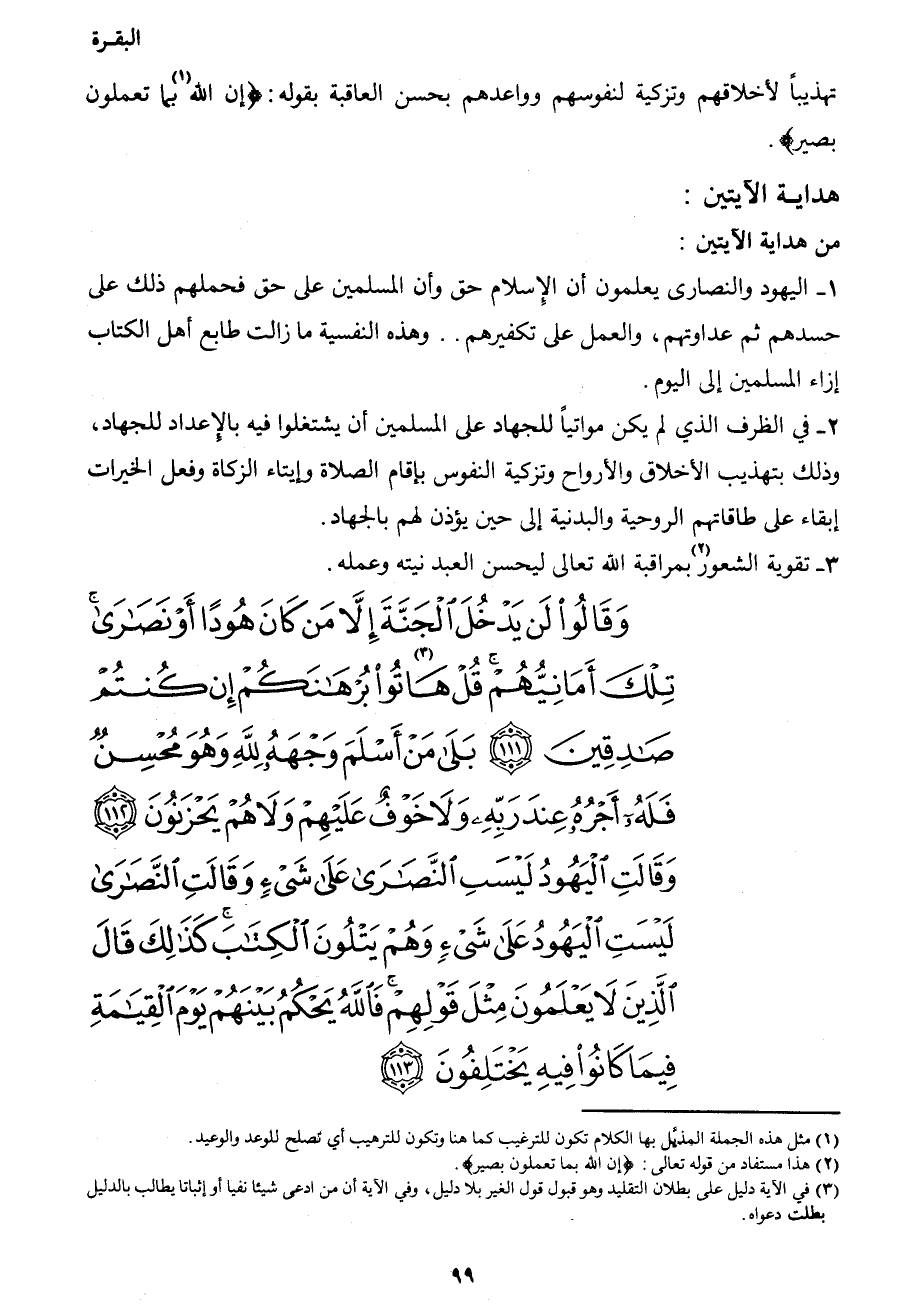 البقـرة
تهذيباً لأخلاقهم وتزكية لنفوسهم وواعدهم بحسن العاقبة بقوله: ﴿إن الله(١) بما تعملون
بصير﴾ .
هدايـة الآيتين :
من هداية الآيتين :
١ـ اليهود والنصارى يعلمون أن الإسلام حق وأن المسلمين على حق فحملهم ذلك على
حسدهم ثم عداوتهم، والعمل على تكفيرهم . . وهذه النفسية ما زالت طابع أهل الكتاب
إزاء المسلمين إلى اليوم .
٢ـ في الظرف الذي لم يكن مواتياً للجهاد على المسلمين أن يشتغلوا فيه بالإعداد للجهاد،
وذلك بتهذيب الأخلاق والأرواح وتزكية النفوس بإقام الصلاة وإيتاء الزكاة وفعل الخيرات
إبقاء على طاقاتهم الروحية والبدنية إلى حين يؤذن لهم بالجهاد.
٣ـ تقوية الشعور(٢) بمراقبة الله تعالى ليحسن العبد نيته وعمله .
وَقَالُوا۟ لَن يَدْخُلَ ٱلْجَنَّةَ إِلَّا مَن كَانَ هُودًا أَوْ نَصَـٰرَىٰ ۗ
تِلْكَ أَمَانِيُّهُمْ ۗ قُلْ هَاتُوا۟(٣) بُرْهَـٰنَكُمْ إِن كُنتُمْ
صَـٰدِقِينَ ﴿١١١﴾ بَلَىٰ مَنْ أَسْلَمَ وَجْهَهُۥ لِلَّهِ وَهُوَ مُحْسِنٌ
فَلَهُۥٓ أَجْرُهُۥ عِندَ رَبِّهِۦ وَلَا خَوْفٌ عَلَيْهِمْ وَلَا هُمْ يَحْزَنُونَ ﴿١١٢﴾
وَقَالَتِ ٱلْيَهُودُ لَيْسَتِ ٱلنَّصَـٰرَىٰ عَلَىٰ شَىْءٍ وَقَالَتِ ٱلنَّصَـٰرَىٰ
لَيْسَتِ ٱلْيَهُودُ عَلَىٰ شَىْءٍ وَهُمْ يَتْلُونَ ٱلْكِتَـٰبَ ۗ كَذَٰلِكَ قَالَ
ٱلَّذِينَ لَا يَعْلَمُونَ مِثْلَ قَوْلِهِمْ ۚ فَٱللَّهُ يَحْكُمُ بَيْنَهُمْ يَوْمَ ٱلْقِيَـٰمَةِ
فِيمَا كَانُوا۟ فِيهِ يَخْتَلِفُونَ ﴿١١٣﴾
(١) مثل هذه الجملة المذيَّل بها الكلام تكون للترغيب كما هنا وتكون للترهيب أي تصلح للوعد والوعيد .
(٢) هذا مستفاد من قوله تعالى : ﴿إن الله بما تعملون بصير﴾ .
(٣) في الآية دليل على بطلان التقليد وهو قبول قول الغير بلا دليل، وفي الآية أن من ادعى شيئا نفيا أو إثباتا يطالب بالدليل وإلا
بطلت دعواه.
٩٩